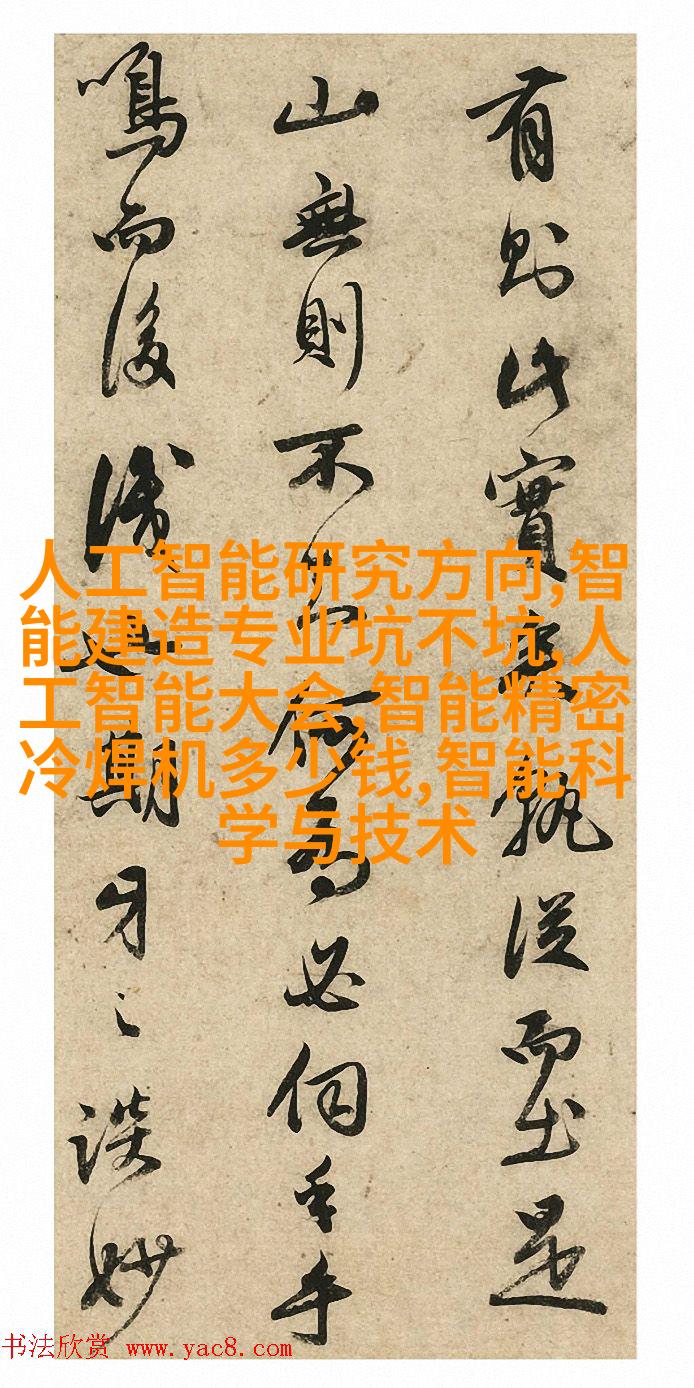 有則此實執從而出是
山無則不為必伺乎牛
鳴而後識也期牙之談妙
人工智能研究方向,智
能建造专业坑不坑,人
工智能大会,智能精密
冷焊机多少钱,智能科
学与技术
书法欣赏 www.yac8.com